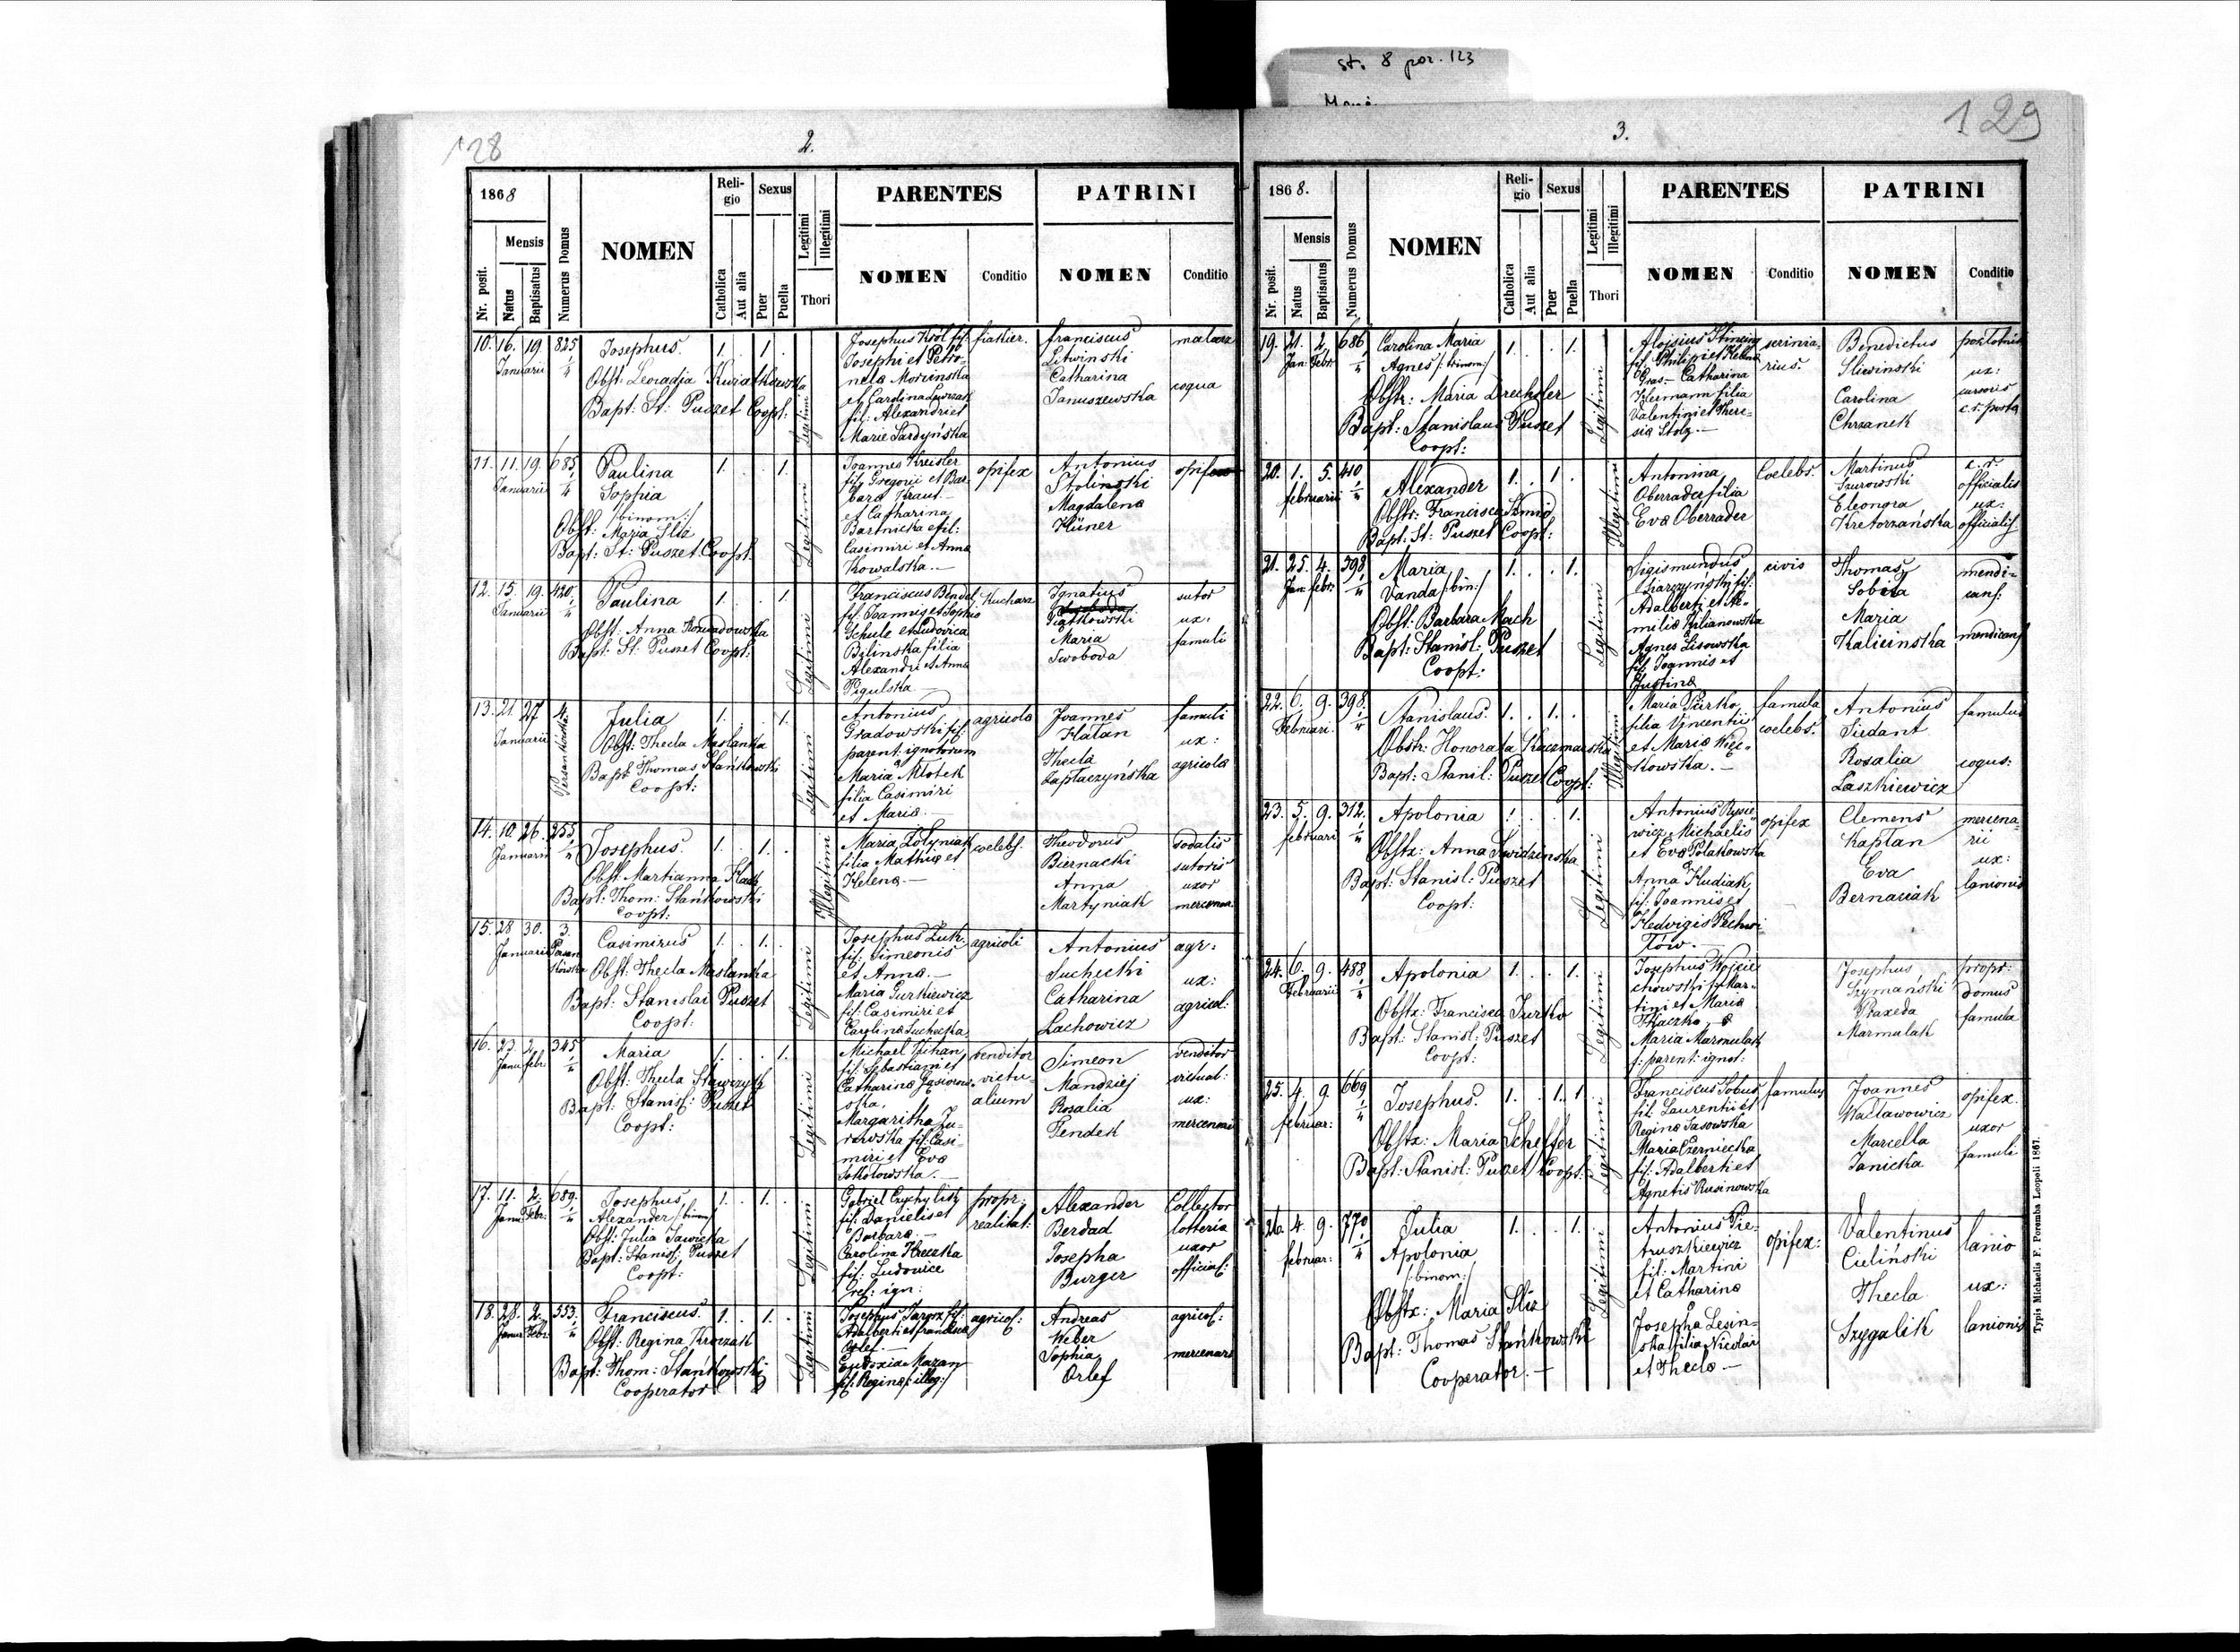 st. 8 poz. 123
128
2.
1868
Mensis
Nr. posit.
Natus
Baptisatus
Numerus Domus
NOMEN
Reli-
gio
Catholica
Aut alia
Sexus
Puer
Puella
Legitimi
Illegitimi
Thori
PARENTES
NOMEN
Conditio
PATRINI
NOMEN
Conditio
10. 16. 19. 825
Januarii
Josephus.
1. 1.
Obst: Leocadja Kwiatkowska
Bapt: St: Puszet Coopt:
Legitimi
Josephus Król fil:
Josephi et Petro-
nela
et Carolina
fil: Alexandri et
Mariæ Sardyńska
fiakier.
Franciscus
Litwinski
Catharina
Januszewska
malarz
coqua
11. 11. 19. 685
Januarii
Paulina
Sophia
/:binom:/
1. 1.
Obst: Maria Sliz
Bapt: St: Puszet Coopt:
Legitimi
Joannes Kreisler
fil: Gregorii et Bar-
bara Kraus.
et Catharina
Bartnicka et fil:
Casimiri et Anna
Kowalska.
opifex
Antonius
Stolinski
Magdalena
Hüner
12. 15. 19. 420
Januarii
Paulina
1. 1.
Obst: Anna Rozwadowska
Bapt: St: Puszet Coopt:
Legitimi
Franciscus Bendel
fil: Joannis et Sophia
Schulz et Ludovica
Bilinska filia
Alexandri et Anna
Pigulska
Kuchars
Ignatius
Piątkowski
Maria
Swoboda
sutor
ux:
famuli
13. 21. 27 4.
Januarii
Persenkówka
Julia
1. 1.
Obst: Thecla Maslanka
Bapt: Thomas Stańkowski
Coopt:
Legitimi
Antonius
Gradowski fil:
parent: ignotorum
Maria Młotek
filia Casimiri
et Maria.
agricola
Joannes
Hatan
Thecla
Zaptaczyńska
famuli
ux:
agricola
14. 10. 26. 255
Januarii
Josephus.
1. 1.
Obst: Martianna
Bapt: Thom: Stańkowski
Coopt:
Illegitimi
Maria Zołyniak
filia Mathiæ et
Helena.
coelebs.
Theodorus
Biernacki
Anna
Martyniak
sodalis
sutoris
uxor
15. 28 30. 3.
Januarii
Casimirus
1. 1.
Obst: Thecla Maslanka
Bapt: Stanislai Puszet
Coopt:
Legitimi
Josephus Żuk
fil: Simeonis
et Anna.
Maria Gurkiewicz
fil: Casimiri et
Carolina Suchecka.
agricoli
Antonius
Suchecki
Catharina
Lachowicz
agr:
ux:
agricol:
16. 23. 2. 345
Janu: febr:
Maria
1. 1.
Obst: Thecla
Bapt: Stanisl: Puszet
Coopt:
Legitimi
Michael Kihan
fil: Sebastiani et
Catharina
Margaritha
fil: Casi-
miri et Eva
Sokołowska.
venditor
victu-
alium
Simeon
Mandziej
Rosalia
Tendek
venditor
victual:
ux:
17. 11. 2. 689.
Janu: Febr:
Josephus
Alexander /:binom:/
1. 1.
Obst: Julia Sawicka
Bapt: Stanisl: Puszet
Coopt:
Legitimi
Gabriel
fil: Danielis et
Barbara.
Carolina Hreczka
fil: Ludovice
ign:
propr:
realitat:
Alexander
Berdad
Josepha
Burger
Collector
lotteria
uxor
official:
18. 28. 2. 553.
Janu: Febr:
Franciscus.
1. 1.
Obst: Regina Krawczak
Bapt: Thom: Stańkowski
Cooperator
Legitimi
Josephus Jargox fil:
Adalberti et Francisca
Orlef.
Eudoxia Mazan
fil: Regina /:illeg:/
agricol:
Andreas
Weber
Sophia
Orlef
agricol:
129
3.
1868.
Mensis
Nr. posit.
Natus
Baptisatus
Numerus Domus
NOMEN
Reli-
gio
Catholica
Aut alia
Sexus
Puer
Puella
Legitimi
Illegitimi
Thori
PARENTES
NOMEN
Conditio
PATRINI
NOMEN
Conditio
19. 21. 2. 686
Jan: Febr:
Carolina Maria
Agnes /:trinom:/
1. 1.
Obstr: Maria Drechsler
Bapt: Stanislaus Puszet
Coopt:
Legitimi
Aloisius
fil: Philipi et Helena
Gras - Catharina
Hermann filia
Valentini et There-
sia Stolz.
scrinia-
rius.
Benedictus
Sliwinski
Carolina
Chrzanek
ux:
cursoris
c. r. posta
20. 1. 5. 410
februarii
Alexander
1. 1.
Obstr: Francisca Szmid
Bapt: St: Puszet Coopt:
Illegitimi
Antonina
Oberrader filia
Eva Oberrader
Coelebs.
Martinus
Szurowski
Eleonora
Kretorzańska
c. r.
officialis
ux:
official:
21. 25. 4. 398
Jan: febr:
Maria
Vanda /:bin:/
1. 1.
Obst: Barbara Mach
Bapt: Stanisl: Puszet
Coopt:
Legitimi
Sigismundus
fil:
Adalberti et Ae-
milia Kilianowska
Agnes Lisowska
fil: Joannis et
Justina
civis
Thomas
Sobota
Maria
Kalicinska
mendi-
cans:
mendicans
22. 6. 9. 398
Februari:
Stanislaus.
1. 1.
Obstr: Honorata Kaczmarska
Bapt: Stanil: Puszet Coopt:
Illegitimi
Maria Purko
filia Vincentii
et Maria Więc-
kowska.
famula
coelebs.
Antonius
Siedant
Rosalia
Laszkiewicz
famulus
coquus:
23. 5. 9. 312.
februari
Apolonia
1. 1.
Obstx: Anna Swidzinska
Bapt: Stanisl: Puszet
Coopt:
Legitimi
Antonius
wicz Michaelis
et Eva Polakowska
Anna Hudiak
fil: Joannis et
Hedvigis
opifex
Clemens
Kaplan
Eva
Bernasiak
mercena-
rii
ux:
lanionis
24. 6. 9. 488
Februarii
Apolonia
1. 1.
Obstx: Francisca Turko
Bapt: Stanisl: Puszet
Coopt:
Legitimi
Josephus Wojcie
chowski f: Mar-
tini et Maria
Tkaczko
Maria Marmulak
f: parent: ignot:
Josephus
Szymański
Praxeda
Marmulak
propr:
domus
famula
25. 4. 9. 669
februar:
Josephus.
1. 1. 1
Obstx: Maria Scheffer
Bapt: Stanisl: Puszet Coopt:
Legitimi
Franciscus Sobus
fil: Laurentii et
Regina Sasowska
Maria Czerniecka
fil: Adalberti et
Agnetis Rusinowska
famulus
Joannes
Wacławowicz
Marcella
Janicka
opifex.
uxor
famuli
26. 4. 9. 770
februar:
Julia
Apolonia
/:binom:/
1. 1.
Obstx: Maria Sliz
Bapt: Thomas Stańkowski
Cooperator.
Legitimi
Antonius Pie-
truszkiewicz
fil: Martini
et Catharina
Josepha Lesin-
ska filia Nicolai
et Thecla
opifex:
Valentinus
Cieliński
Thecla
Szygalik
lanio
ux:
lanionis
Typis Michaelis F. Poremba Leopoli 1867.